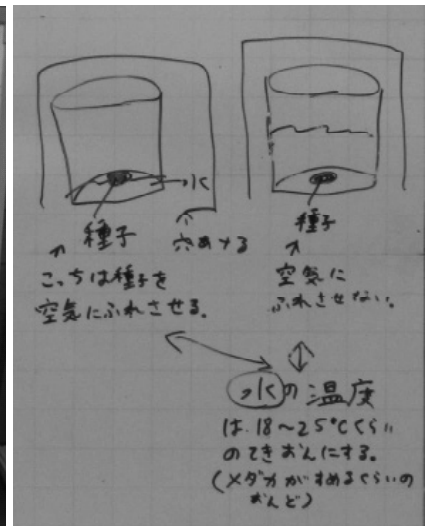 水
種子
穴あける
こっちは種子を
空気にふれさせる。
種子
空気に
ふれさせない。
水の温度
は、18〜25℃くらい
のてきおんにする。
(メダカがすめるくらいの
おんど)